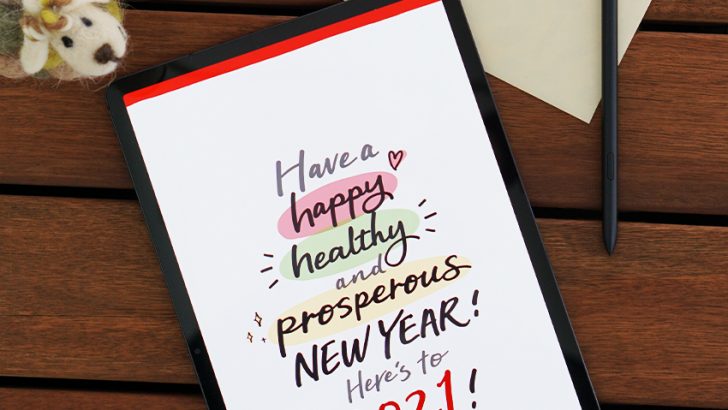 Have a
happy
healthy
and
prosperous
NEW YEAR!
Here's to
2021!